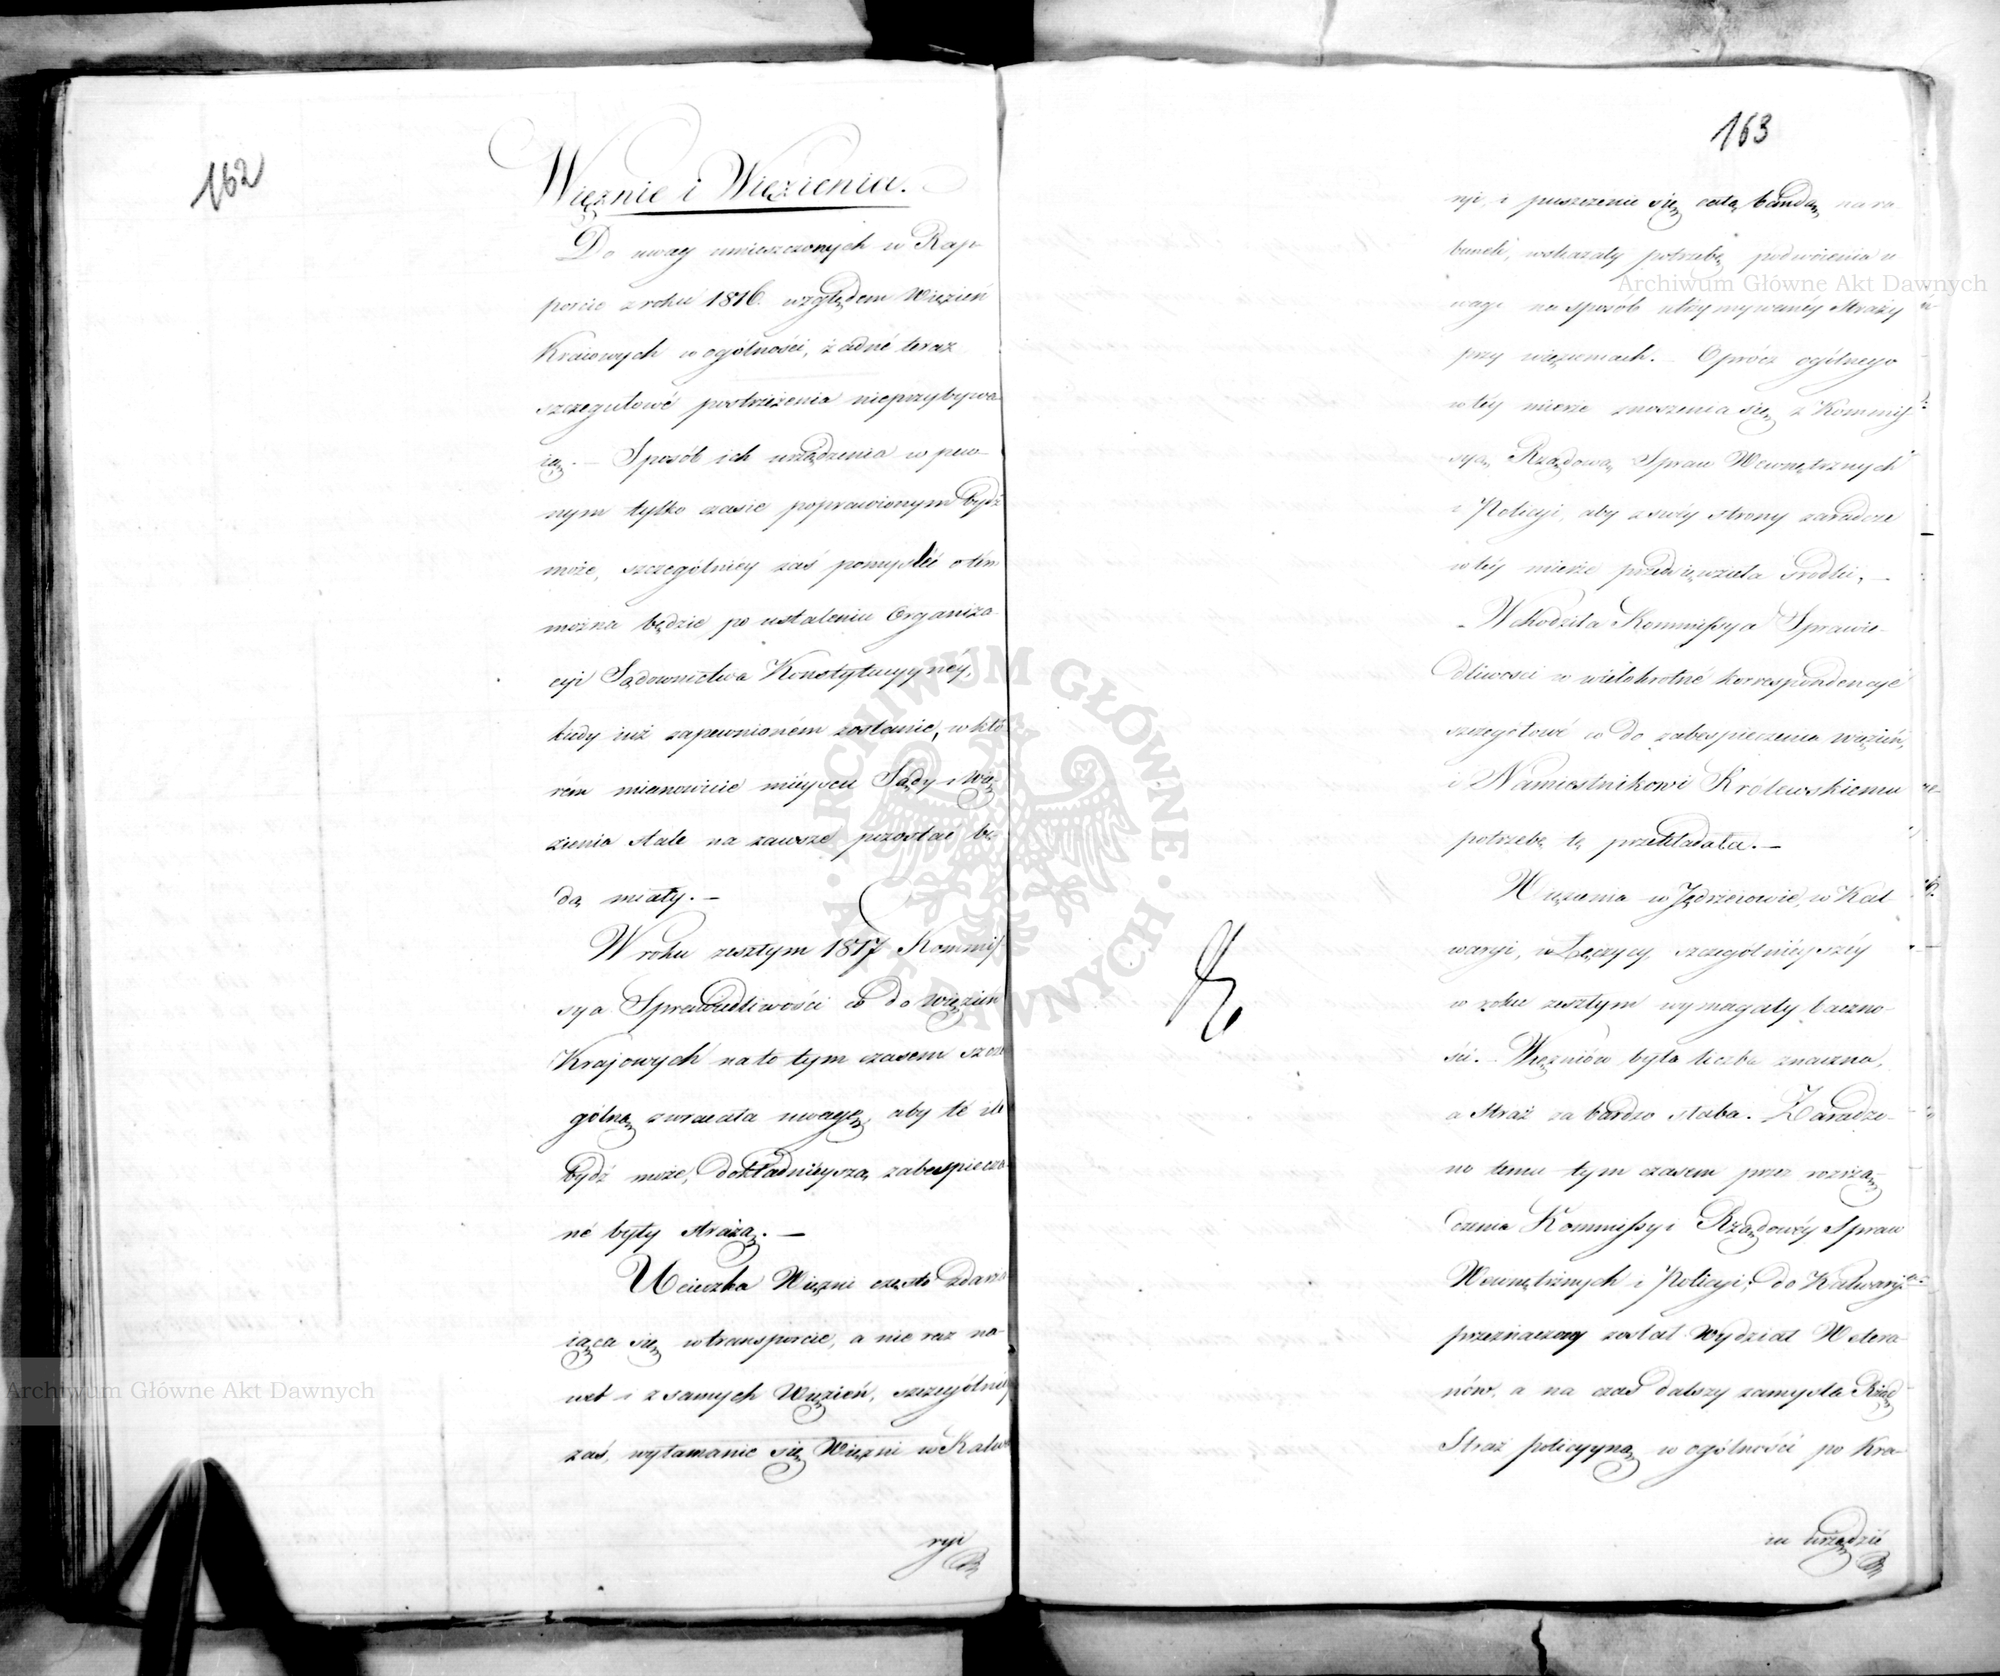 162
Więźnie i Więzienia.
Do uwag umieszczonych w Rap-
porcie z roku 1816. względem Więzień
Kraiowych w ogólności, żadné teraz
szczegułowé postrzeżenia nieprzybywa
ią. – Sposób ich urządzenia w pew-
nym tylko czasie poprawionym bydź
może, szczególniéy zaś pomyśleć o tém
można będzie po ustaleniu Organiza-
cyi Sądownictwa Konstytucyynéy,
kiedy iuż zapewnioném zostanie, w któ
rém mianowicie mieyscu Sądy i Wię
zienia stale na zawsze pozostać bę
dą miały. –
W roku zeszłym 1817 Kommis
sya Sprawiedliwości co do Więzień
Krajowych na to tym czasem szcze
gólną zwracała uwagę, aby té ile
bydź może, dokładnieyszą zabespieczo
né były strażą. –
Ucieczka Więźni często zdarza
iąca się w transporcie, a nie raz na-
wet i z samych Więzień, szczególniéy
zaś, wyłamanie się Więźni w Kalwa
ryi
163
ryi, i puszczenie się całą bandą na ra-
bunek, wskazały potrzebę podwoienia u
wagi na sposób utrzymywanéy Straży
przy więzieniach. – Oprócz ogólnego
w téy mierze znoszenia się z Kommis
syą Rządową Spraw Wewnętrznych
i Policyi, aby z swéy strony zaradcze
w téy mierze przedsięwzięła środki, –
– Wchodziła Kommissya Sprawie-
dliwości w wielokrotné korrespondencyé
szczegółowé co do zabespieczenia więzień,
i Namiestnikowi Królewskiemu
potrzebę tę przekładała. –
Więzienia w Jędrzeiowie, w Kal
waryi, w Łęczycy, szczególnieyszéy
w roku zeszłym wymagały baczno-
ści. – Więźniów była liczba znaczna,
a Straż za bardzo słaba. Zaradzo-
no temu tym czasem przez rozrzą-
dzenia Kommissyi Rządowéy Spraw
Wewnętrznych i Policyi; do Kalwaryi
przeznaczony został Wydział Wetera-
nów, a na czas dalszy zamyśla Rząd
Straż policyyną w ogólności po Kra-
iu urządzić
Archiwum Główne Akt Dawnych
Archiwum Główne Akt Dawnych
ARCHIWUM GŁÓWNE AKT DAWNYCH